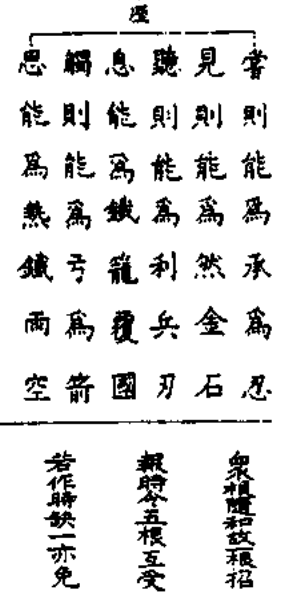 歷
嘗則能爲承爲忍
見則能爲然金石
聽則能爲利兵刃
息能爲鐵籠覆國
觸則能爲弓爲箭
思能爲熱鐵雨空
衆相隨和故一根招
報時令五根互受
若作時缺一亦免